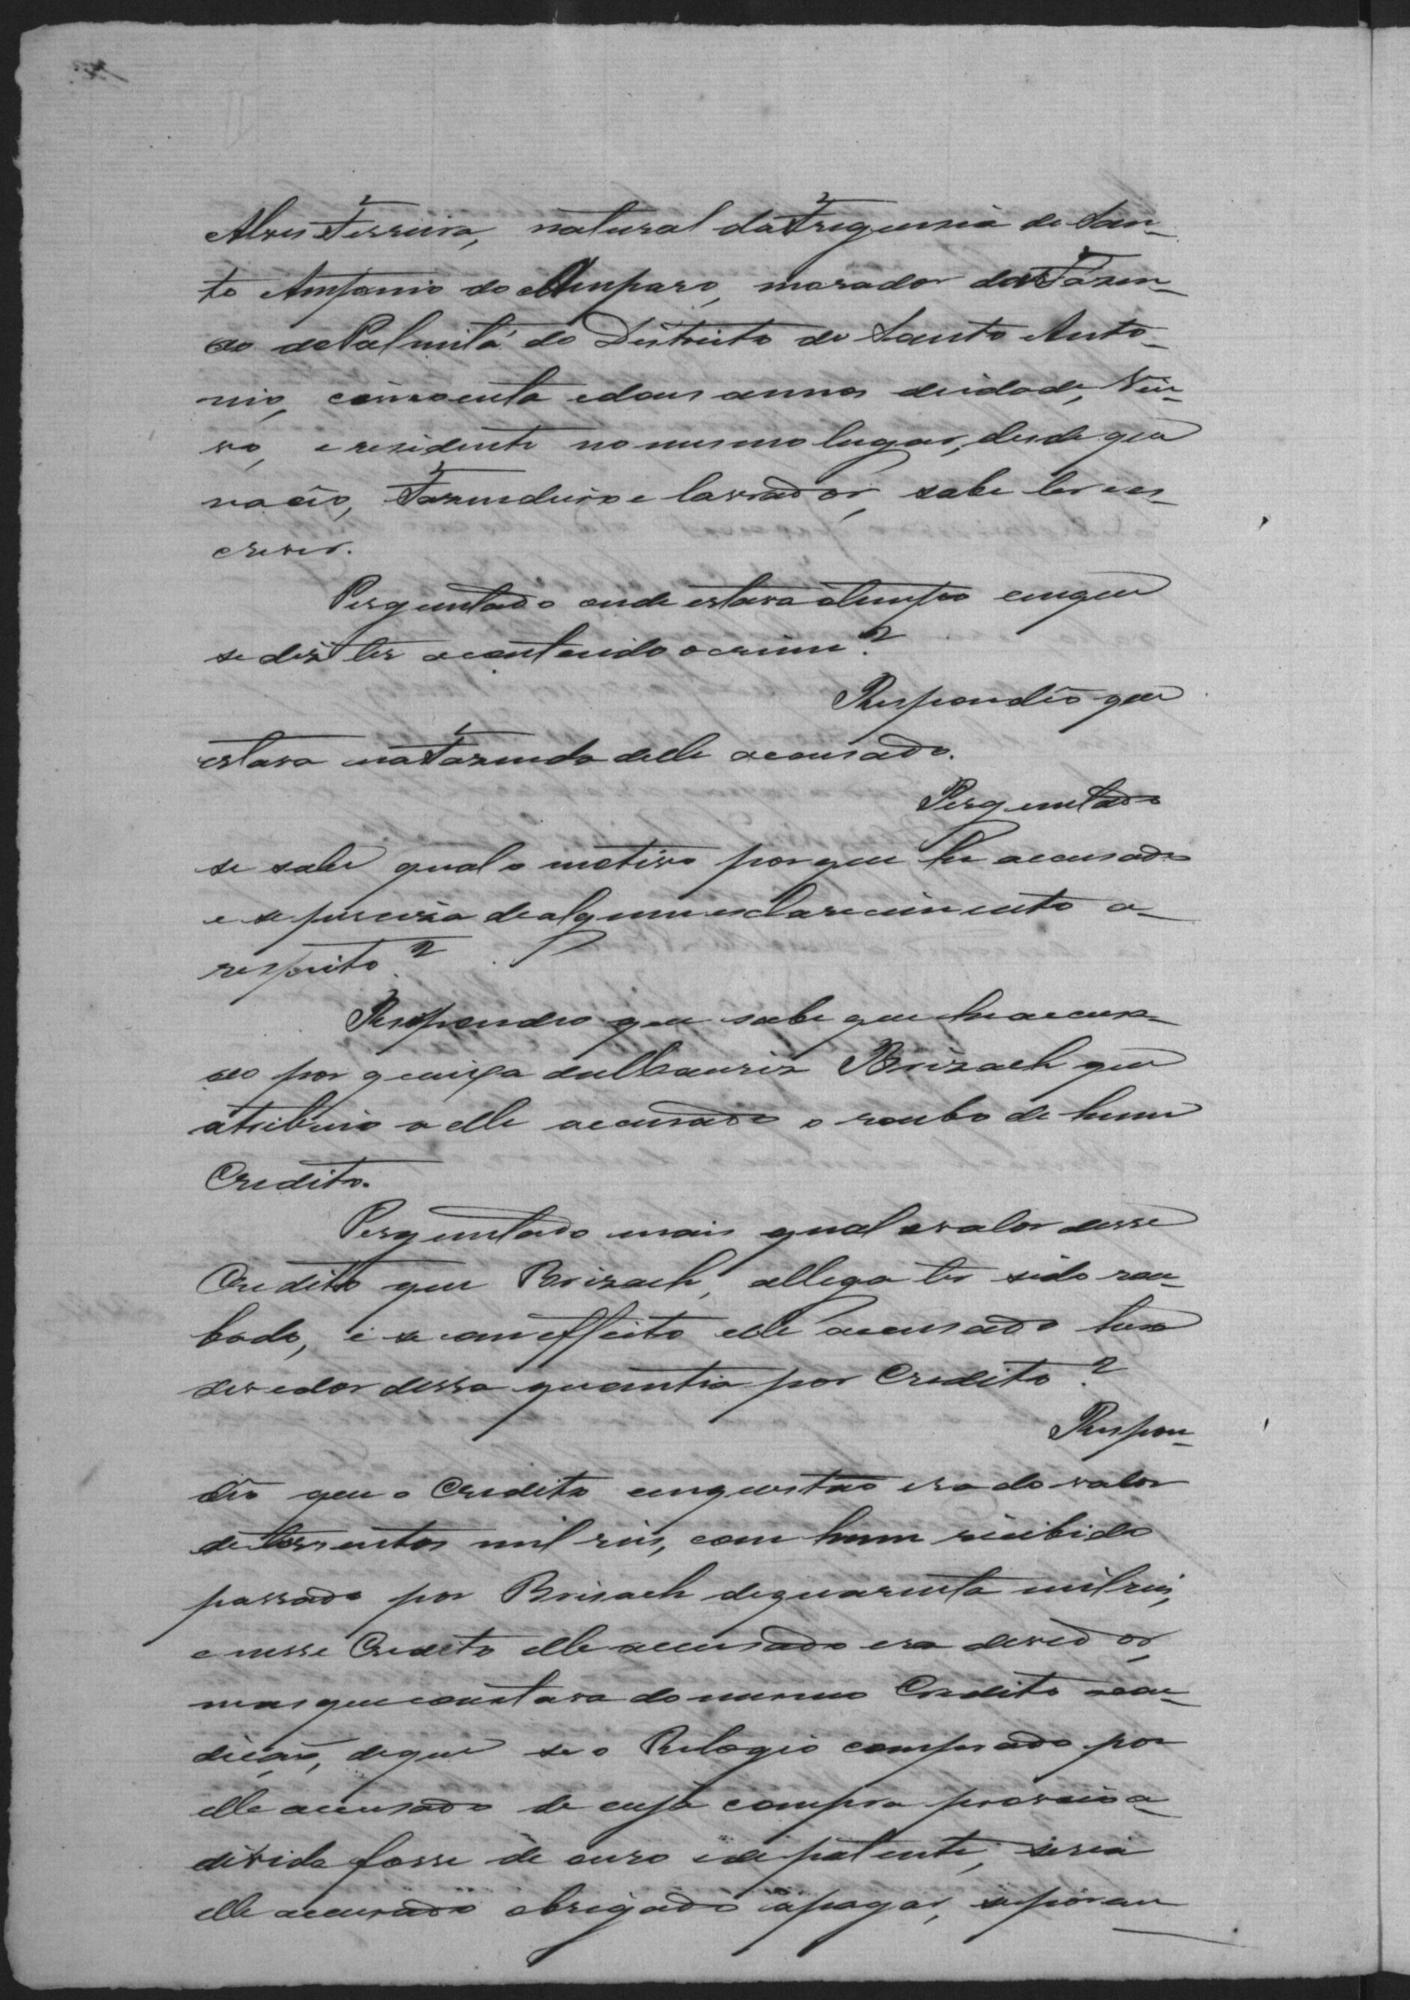 Alves Ferreira, natural da Freguesia de San-
to Antonio do Amparo, morador da Fazen-
da do Palmital do Destricto de Santo Anto-
nio, cincoenta e dous annos de idade, Viu-
vo, e residente no mesmo lugar, desde que
naceo, Fazendeiro e lavrador, sabe ler e es-
crever.
Perguntado onde estava o tempo em que
se diz ter acontecido o crime?
Respondeo que
estava na Fazenda delle accusado.
Perguntado
se sabe qual o motivo por que he accusado
e se precisa de algum esclarecimento a
respeito?
Respondeo que sabe que he accusa-
do por queixa de Mauriz Brizach que
atribuio a elle accusado o roubo de hum
Credito.
Perguntado mais qual o valor desse
Credito que Brizach, allega ter sido rou-
bado, e se com effeito elle accusado hera
devedor dessa quantia por Credito?
Respon-
deo que o Credito em questão era do valor
de tresentos mil reis, com hum recibido
passado por Brisach de quarenta mil reis,
e nesse Credito elle accusado era devedor,
mas que constava do mesmo Credito con-
dição, de que se o Relogio comprado por
elle accusado de cuja compra proveio a
divida fosse de ouro e de patente, seria
elle accusado obrigado a pagar, se porem